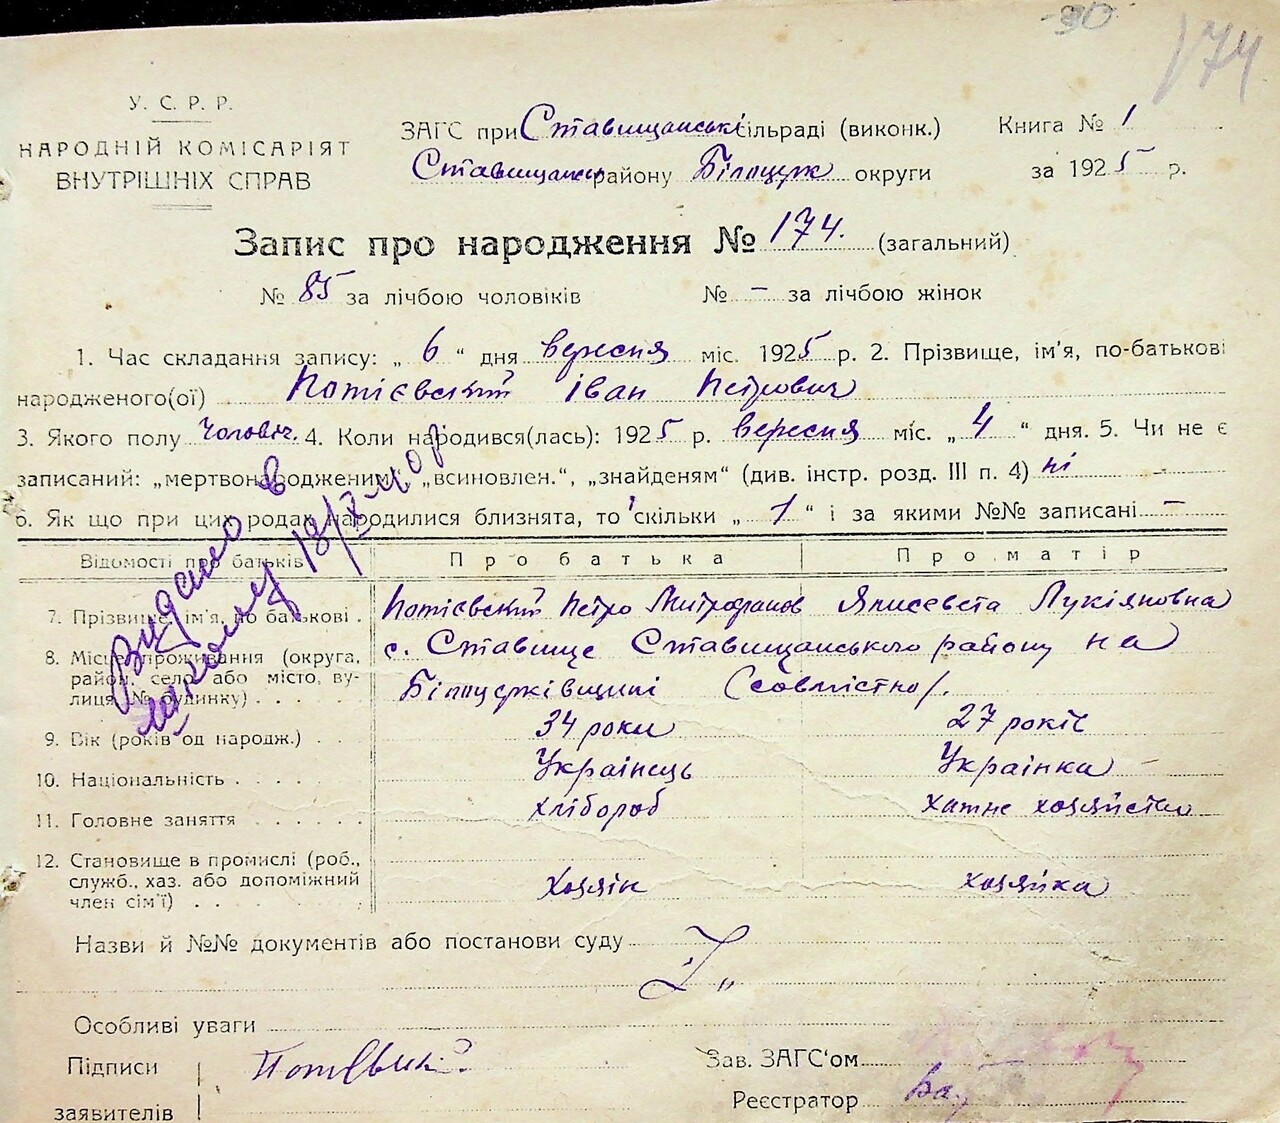 -90-
174
У. С. Р. Р.
НАРОДНІЙ КОМІСАРІЯТ
ВНУТРІШНІХ СПРАВ
ЗАГС при Ставищанські сільраді (виконк.)
Ставищан району Білоцерк округи
Книга № 1
за 1925 р.
Запис про народження № 174. (загальний)
№ 85 за лічбою чоловіків № – за лічбою жінок
1. Час складання запису: „ 6 “ дня вересня міс. 1925 р. 2. Прізвище, ім’я, по-батькові
народженого(ої) Потієвский Іван Петрович
3. Якого полу чоловіч. 4. Коли народився(лась): 1925 р. вересня міс. „ 4 “ дня. 5. Чи не є
записаний: „мертвонародженим“, „всиновлен.“, „знайденям“ (див. інстр. розд. III п. 4) ні
6. Як що при цих родах народилися близнята, то скільки „ 1 “ і за якими №№ записані –
Відомості про батьків Про батька Про матір
7. Прізвище, ім’я, по батькові . Потієвский Петро Митрофанов Елисевета Лукіяновна
8. Місце проживання (округа, район, село або місто, вулиця, № будинку) . . . . с. Ставище Ставищанського району на
Білоцерківщині (совмістно).
9. Вік (років од народж.) . . 34 роки 27 років
10. Національність . . . . Українець Українка –
11. Головне заняття . . . . . . хлібороб хатне хозяйство
12. Становище в промислі (роб., служб., хаз. або допоміжний член сім’ї) . . . . . хозяін хозяйка
Видано
18/X
Назви й №№ документів або постанови суду
Особливі уваги
Підписи
заявителів
Зав. ЗАГС‘ом
Реєстратор